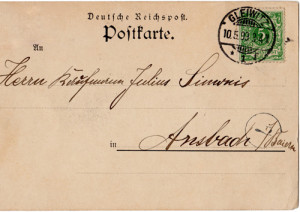 Deutsche Reichspost.
Postkarte.
GLEIWITZ
10.5.99
An
Herrn Kaufmann Julius
in Ansbach
Baiern